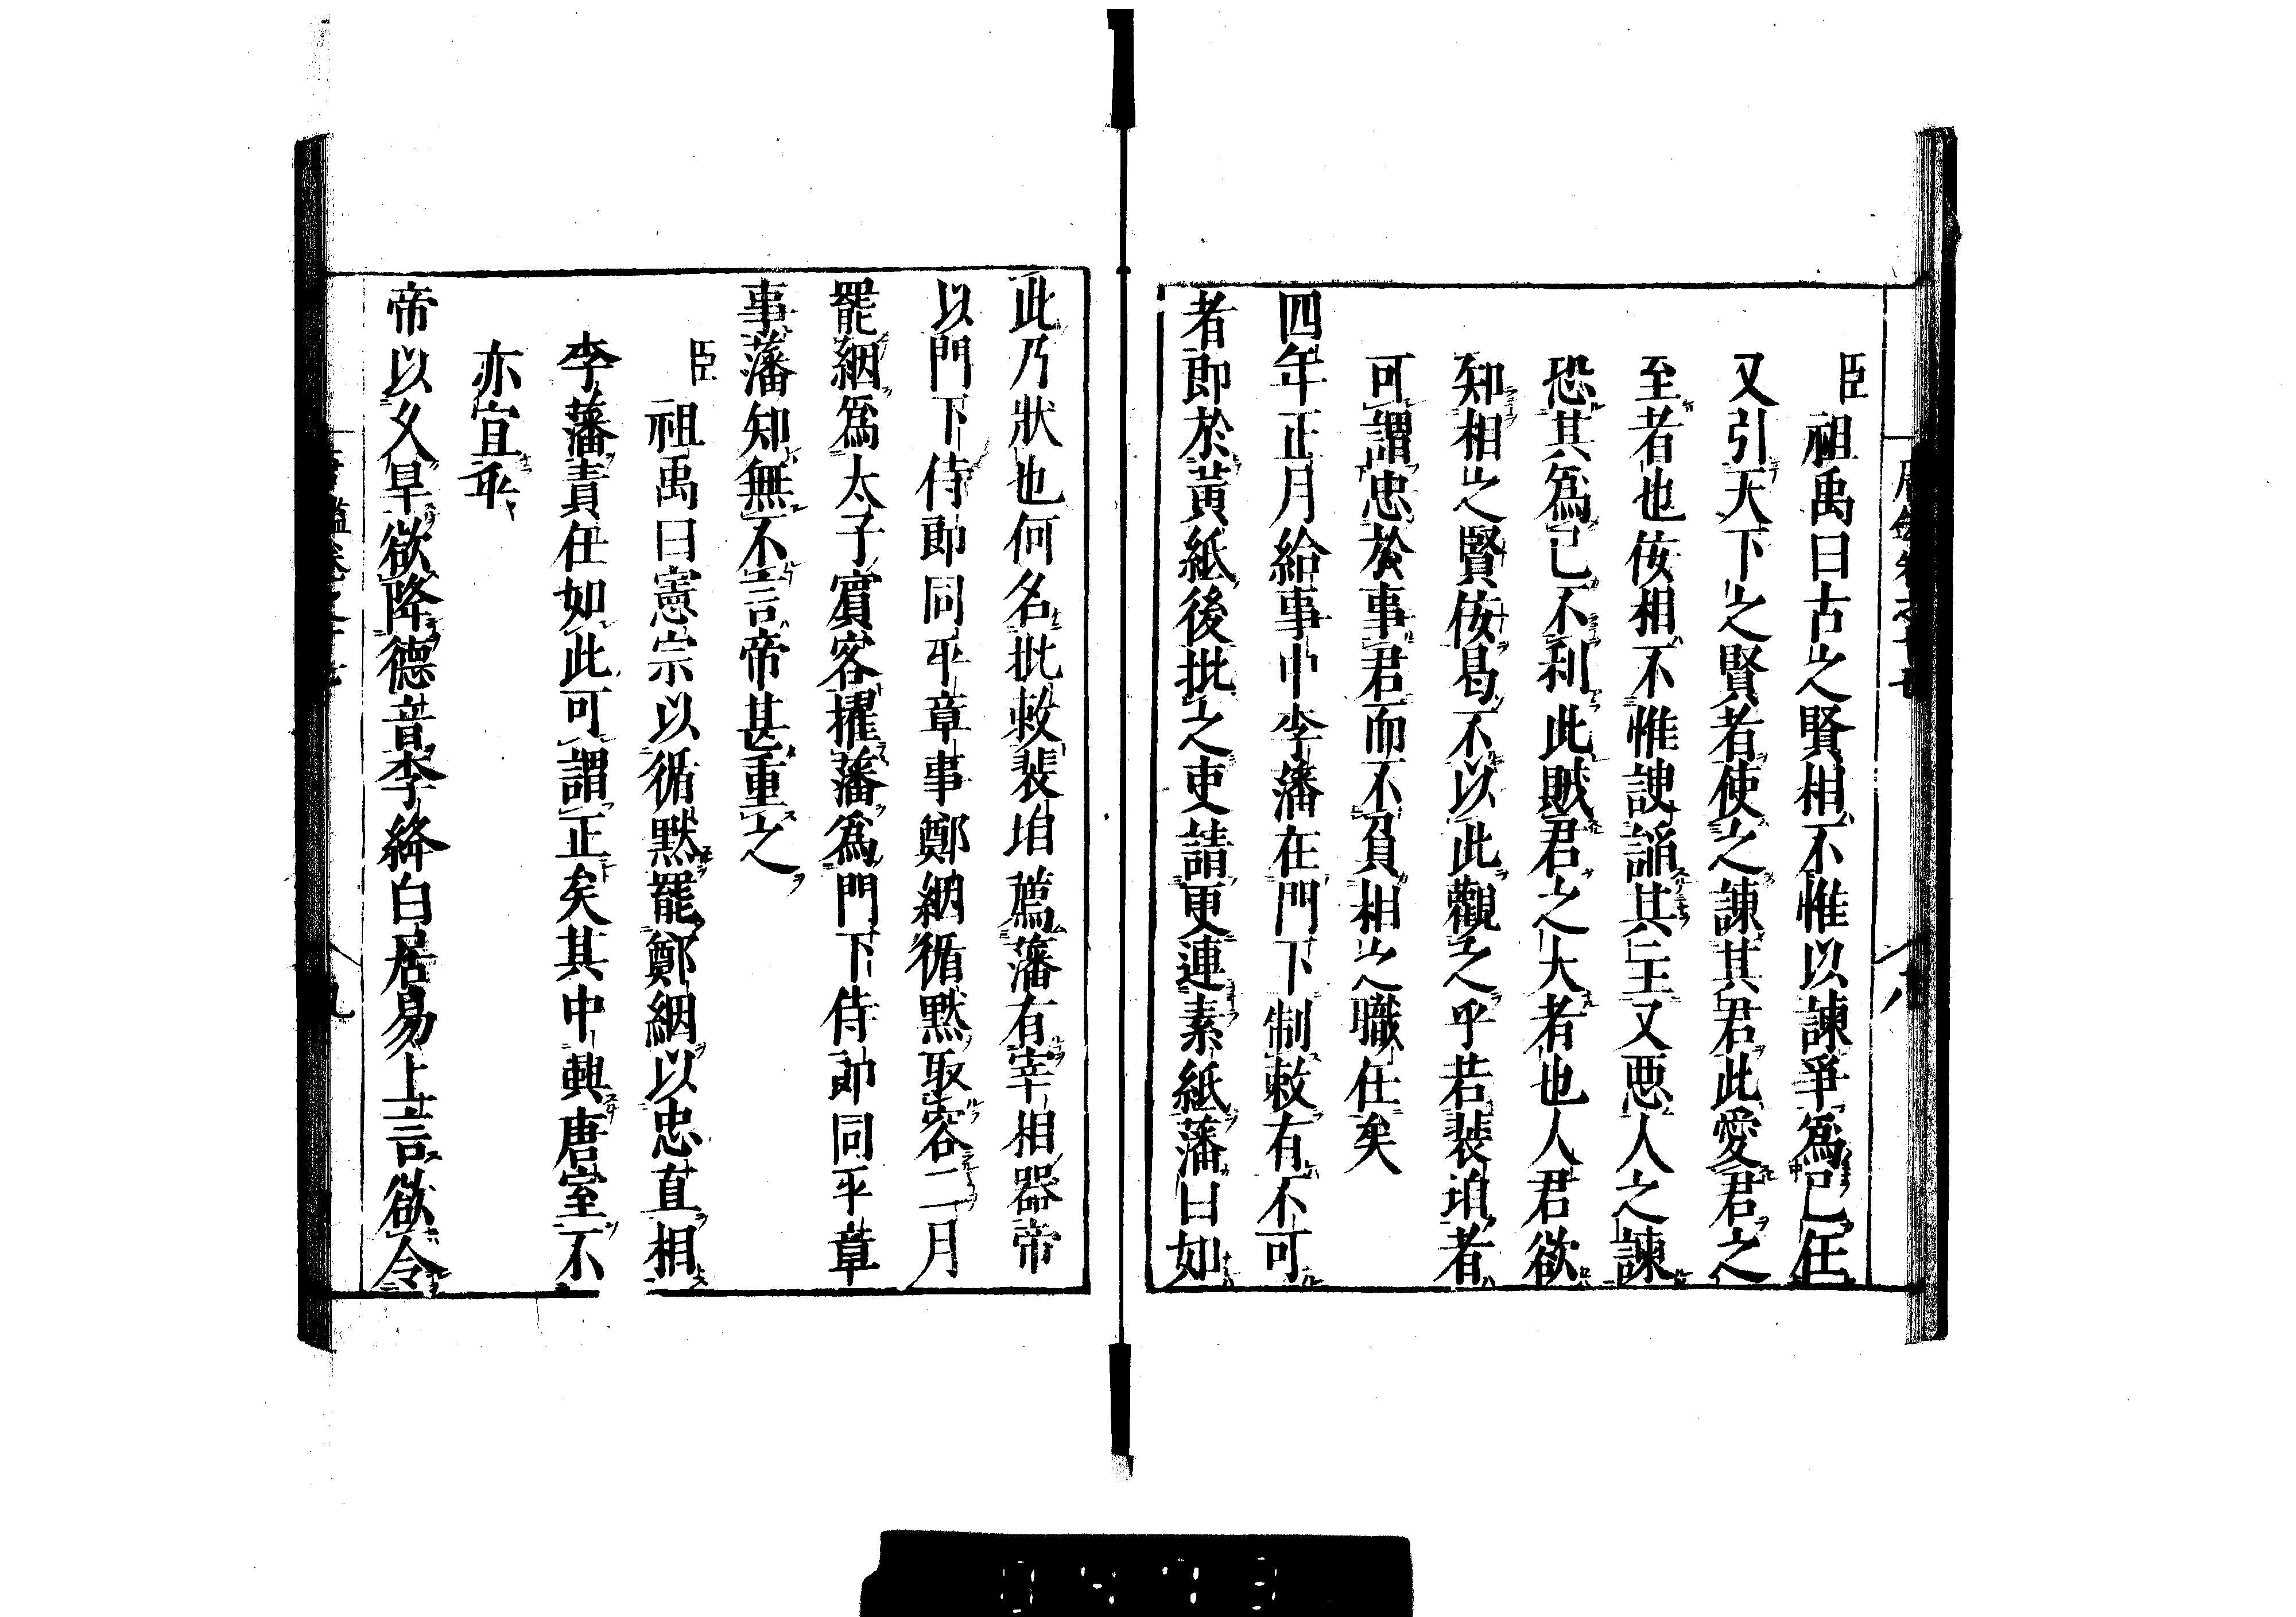 臣祖禹曰古之賢相不惟以諫爭爲己任
又引天下之賢者使之諫其君此愛君之
至者也侫相不惟諛謟其主又惡人之諫
恐其爲己不利此賊君之大者也人君欲
知相之賢侫曷不以此觀之乎若裴垍者
可謂忠於事君而不負相之職任矣
四年正月給事中李藩在門下制敕有不可
者即於黃紙後批之吏請更連素紙藩曰如
此乃狀也何名批敕裴垍薦藩有宰相器帝
以門下侍郎同平章事鄭絪循默取容二月
罷絪爲太子賓客擢藩爲門下侍郎同平章
事藩知無不言帝甚重之
臣祖禹曰憲宗以循默罷鄭絪以忠直相
李藩責任如此可謂正矣其中興唐室不
亦宜乎
帝以久旱欲降德音李絳白居易上言欲令